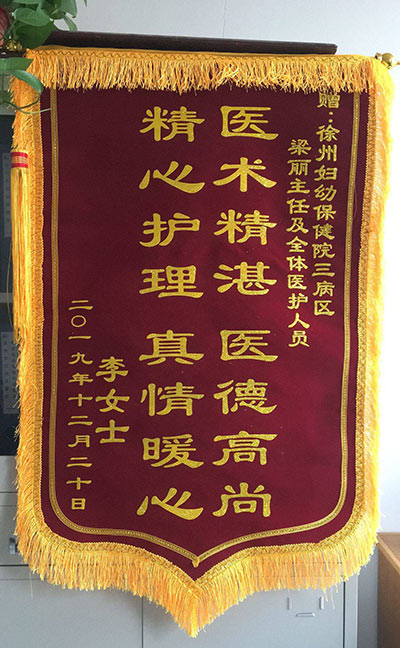 赠：徐州妇幼保健院三病区
梁丽主任及全体医护人员
医术精湛 医德高尚
精心护理 真情暖心
李女士
二〇一九年十二月二十日